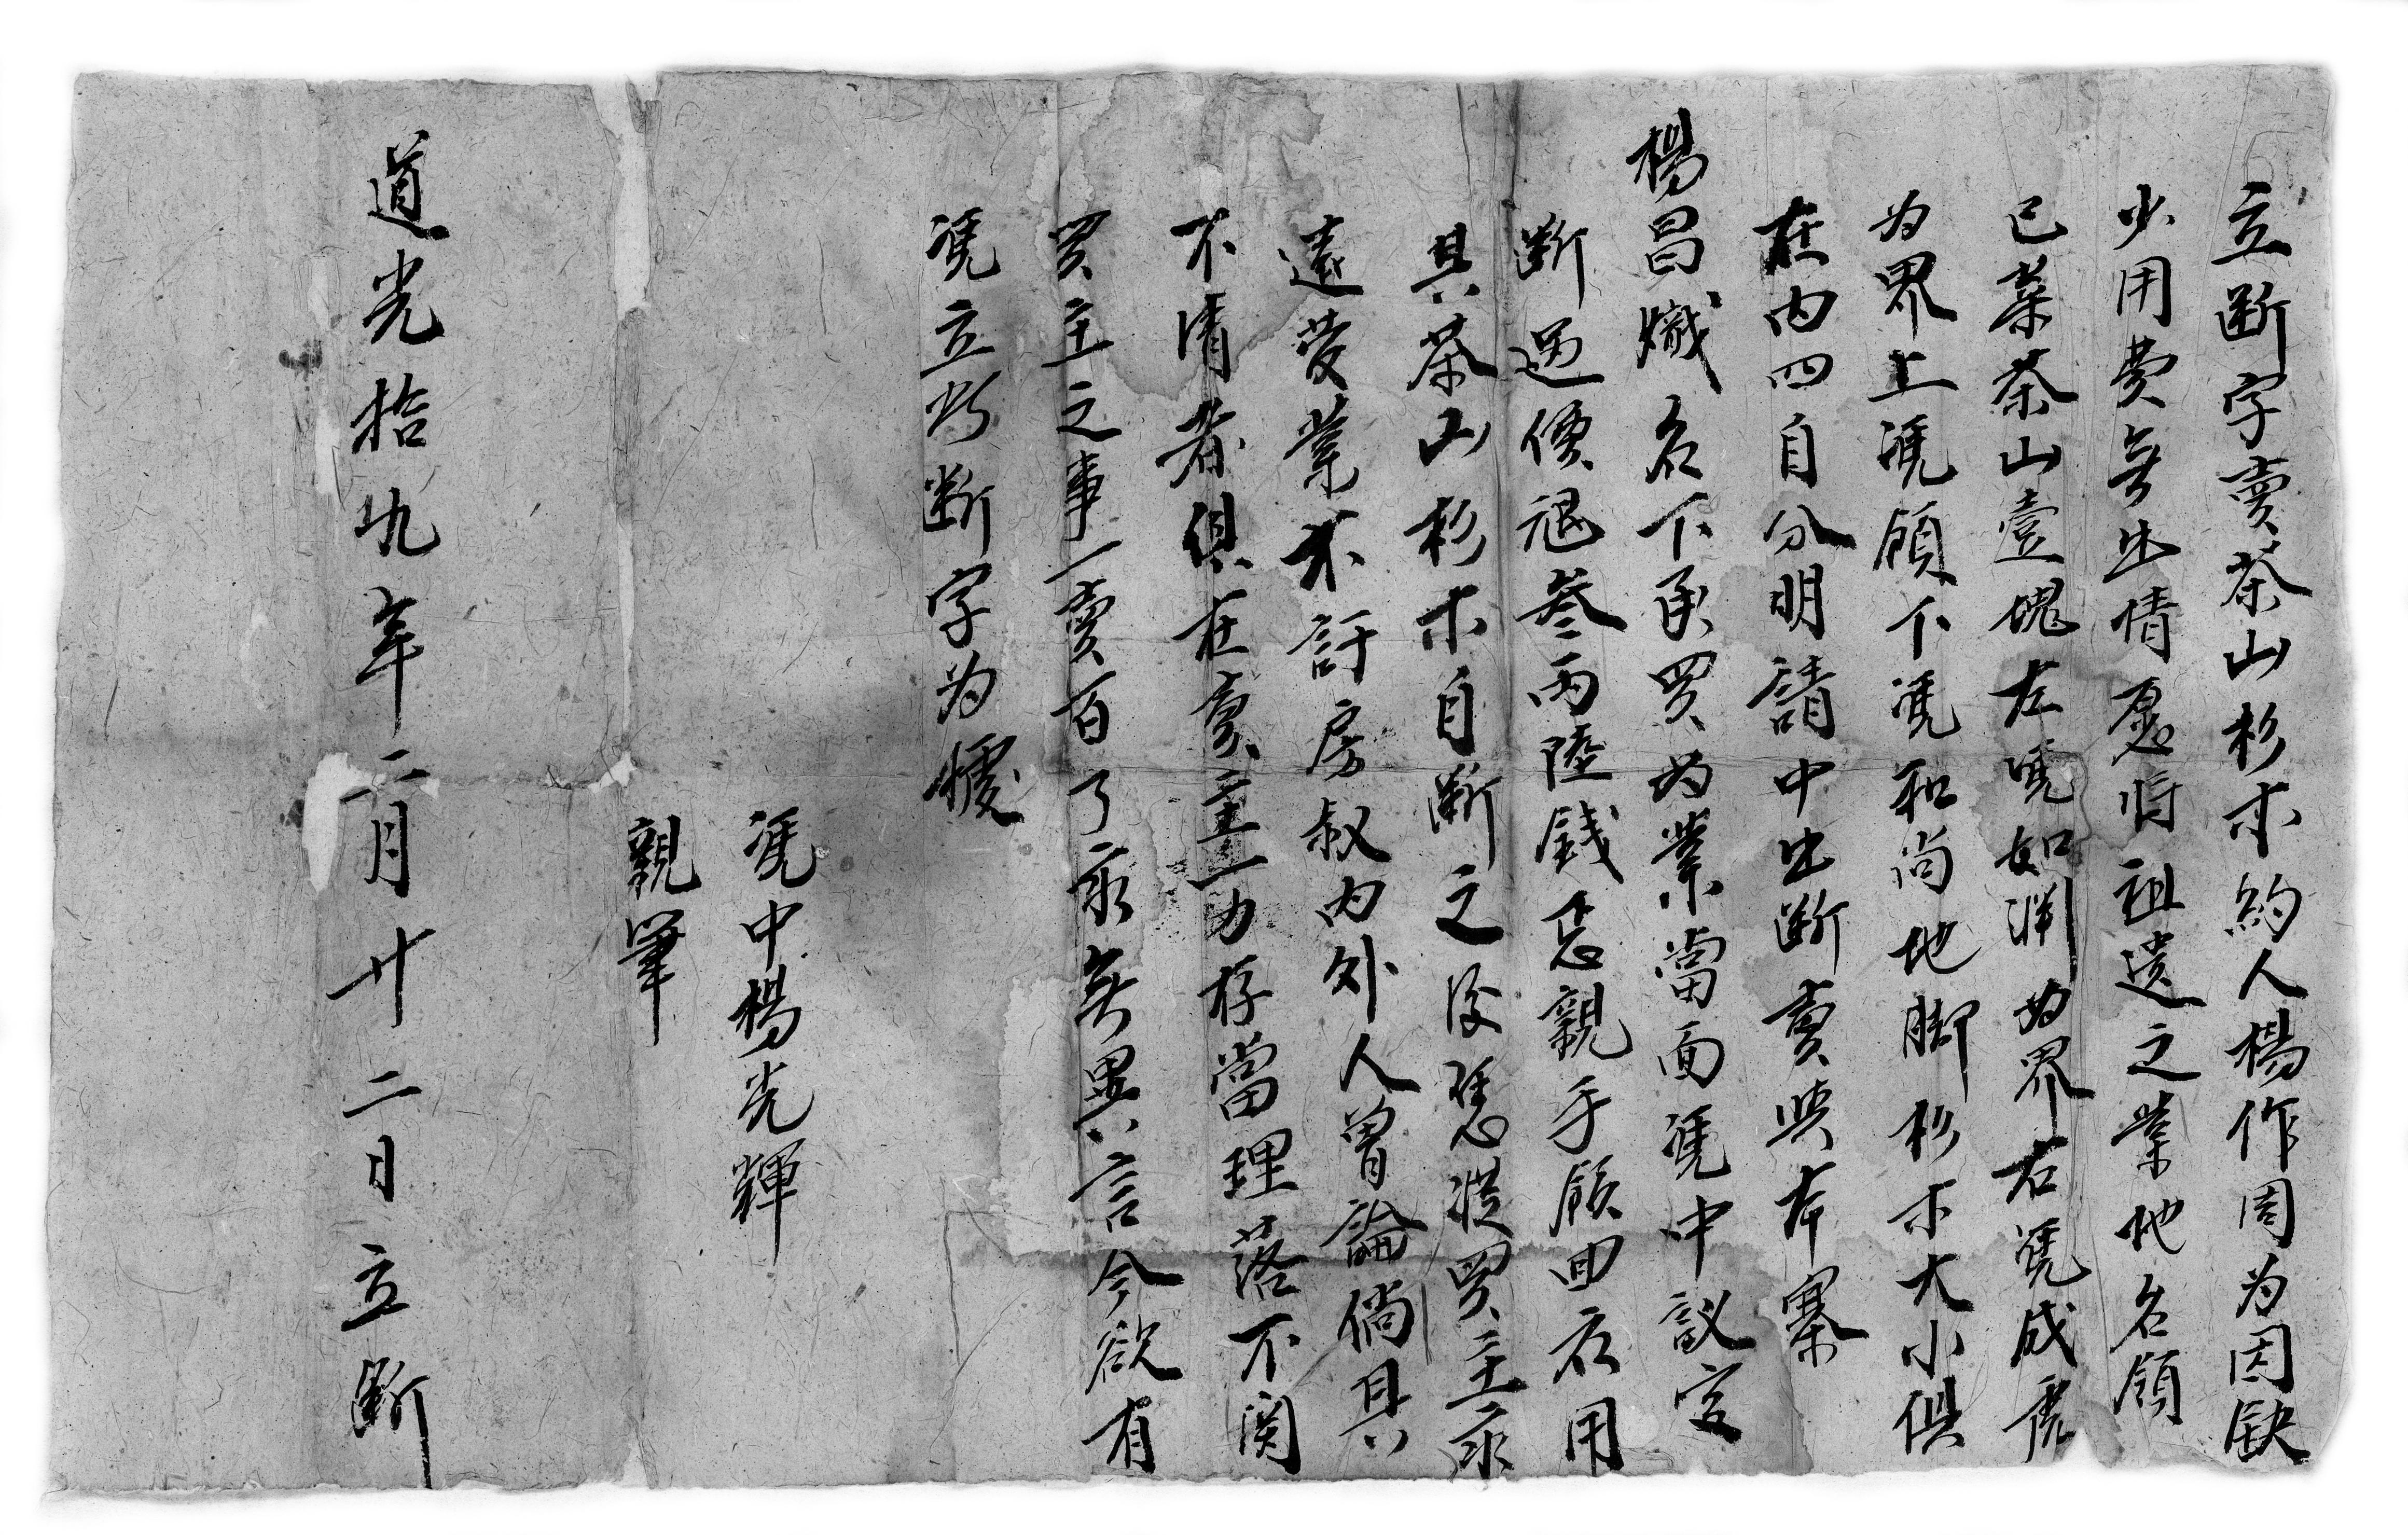 立断字賣茶山杉木約人楊作周为因缺
少用費無出情愿将祖遗之業地名領
已菜茶山壹塊左凴如渊为界右凴成虎
为界上凴領下凴和尚地脚杉木大小俱
在内四自分明請中出断賣與本寨
楊昌熾名下承買为業當面凴中議定
断過價艮叁両陸錢恁親手領回應用
其茶山杉木自断之後恁從買主永
遠發業不許房叔内外人曾論倘其
不清者俱在賣主一力存當理落不関
買主之事一賣百了永無異言今欲有
凴立此断字为㯋
凴中楊光輝
親筆
道光拾九年二月廿二日立断